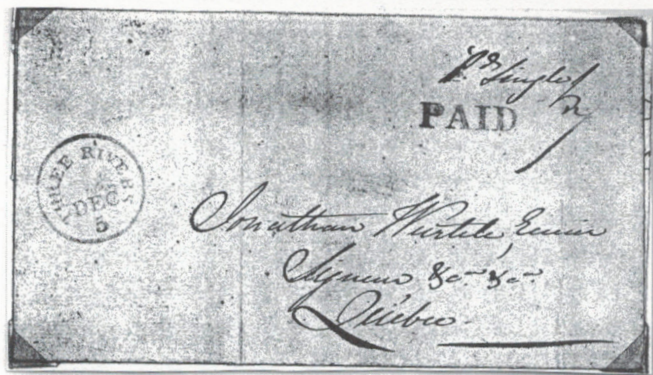 Pd Single
PAID
THREE RIVERS
DEC
5
Jonathan Wurtele, Ecuier
Signeur &c. &c.
Québec.